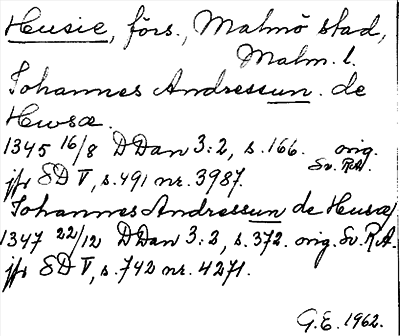 Husie, förs., Malmö stad,
Malm. l.
Johannes Andressun. de
Hwsæ.
1345 16/8 DDan 3:2, s.166. orig.
Sv. R.A.
jfr SD V, s.491 nr. 3987.
Johannes Andressun de Husæ
1347 22/12 DDan 3:2, s.372. orig. Sv. R.A.
jfr SD V, s.742 nr. 4271.
G.E. 1962.